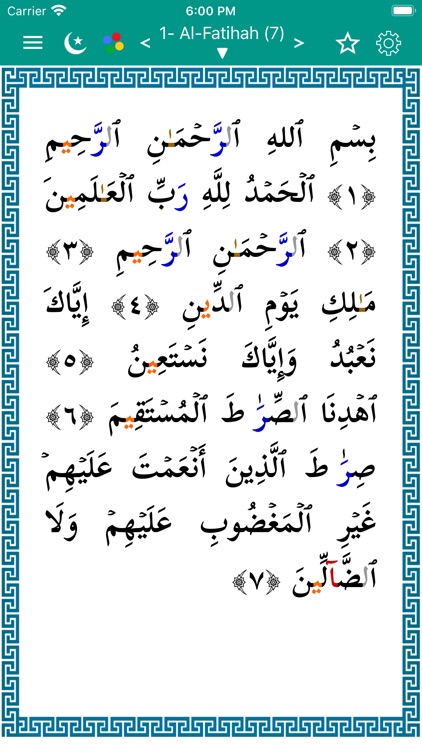 Carrier 6:00 PM
< 1- Al-Fatihah (7) >
بِسۡمِ ٱللهِ ٱلرَّحۡمَـٰنِ ٱلرَّحِيمِ
﴿١﴾ ٱلۡحَمۡدُ لِلَّهِ رَبِّ ٱلۡعَـٰلَمِينَ
﴿٢﴾ ٱلرَّحۡمَـٰنِ ٱلرَّحِيمِ ﴿٣﴾
مَـٰلِكِ يَوۡمِ ٱلدِّينِ ﴿٤﴾ إِيَّاكَ
نَعۡبُدُ وَإِيَّاكَ نَسۡتَعِينُ ﴿٥﴾
ٱهۡدِنَا ٱلصِّرَٰ طَ ٱلۡمُسۡتَقِيمَ ﴿٦﴾
صِرَٰ طَ ٱلَّذِينَ أَنۡعَمۡتَ عَلَيۡهِمۡ
غَيۡرِ ٱلۡمَغۡضُوبِ عَلَيۡهِمۡ وَلَا
ٱلضَّآلِّينَ ﴿٧﴾